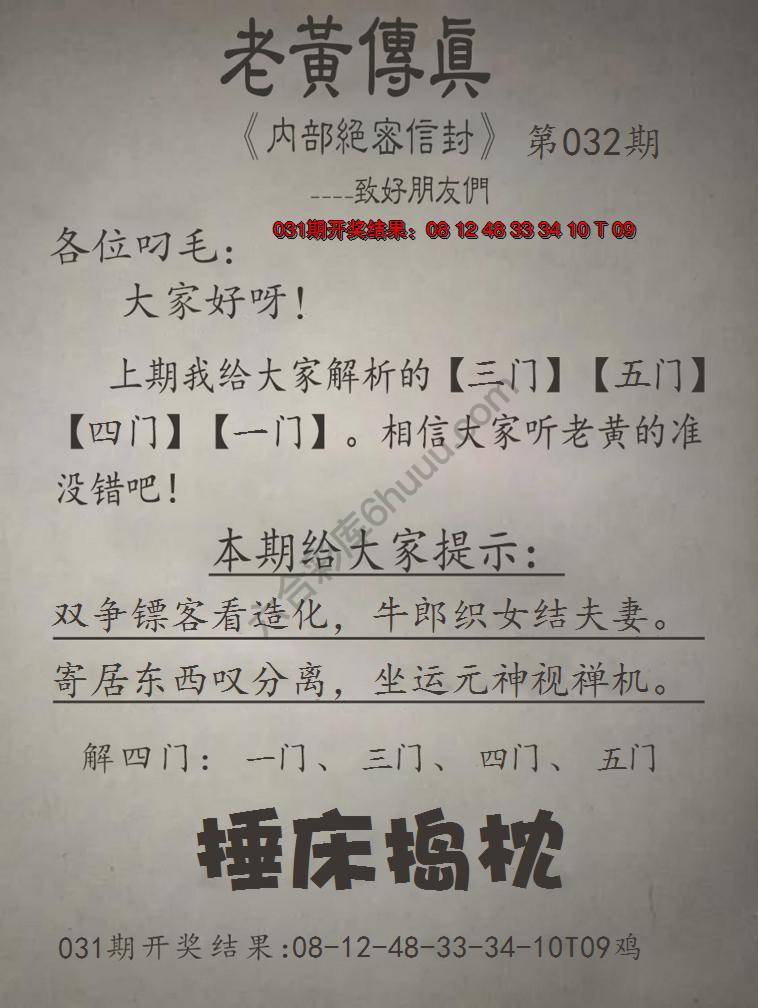 老黃傳真
《内部絕密信封》 第032期
----致好朋友們
031期开奖结果：08 12 48 33 34 10 T 09
各位叼毛：
大家好呀！
上期我给大家解析的【三门】【五门】
【四门】【一门】。相信大家听老黄的准
没错吧！
本期给大家提示：
双争镖客看造化，牛郎织女结夫妻。
寄居东西叹分离，坐运元神视禅机。
解四门：一门、三门、四门、五门
捶床捣枕
031期开奖结果:08-12-48-33-34-10T09鸡
六合彩库6huuu.com